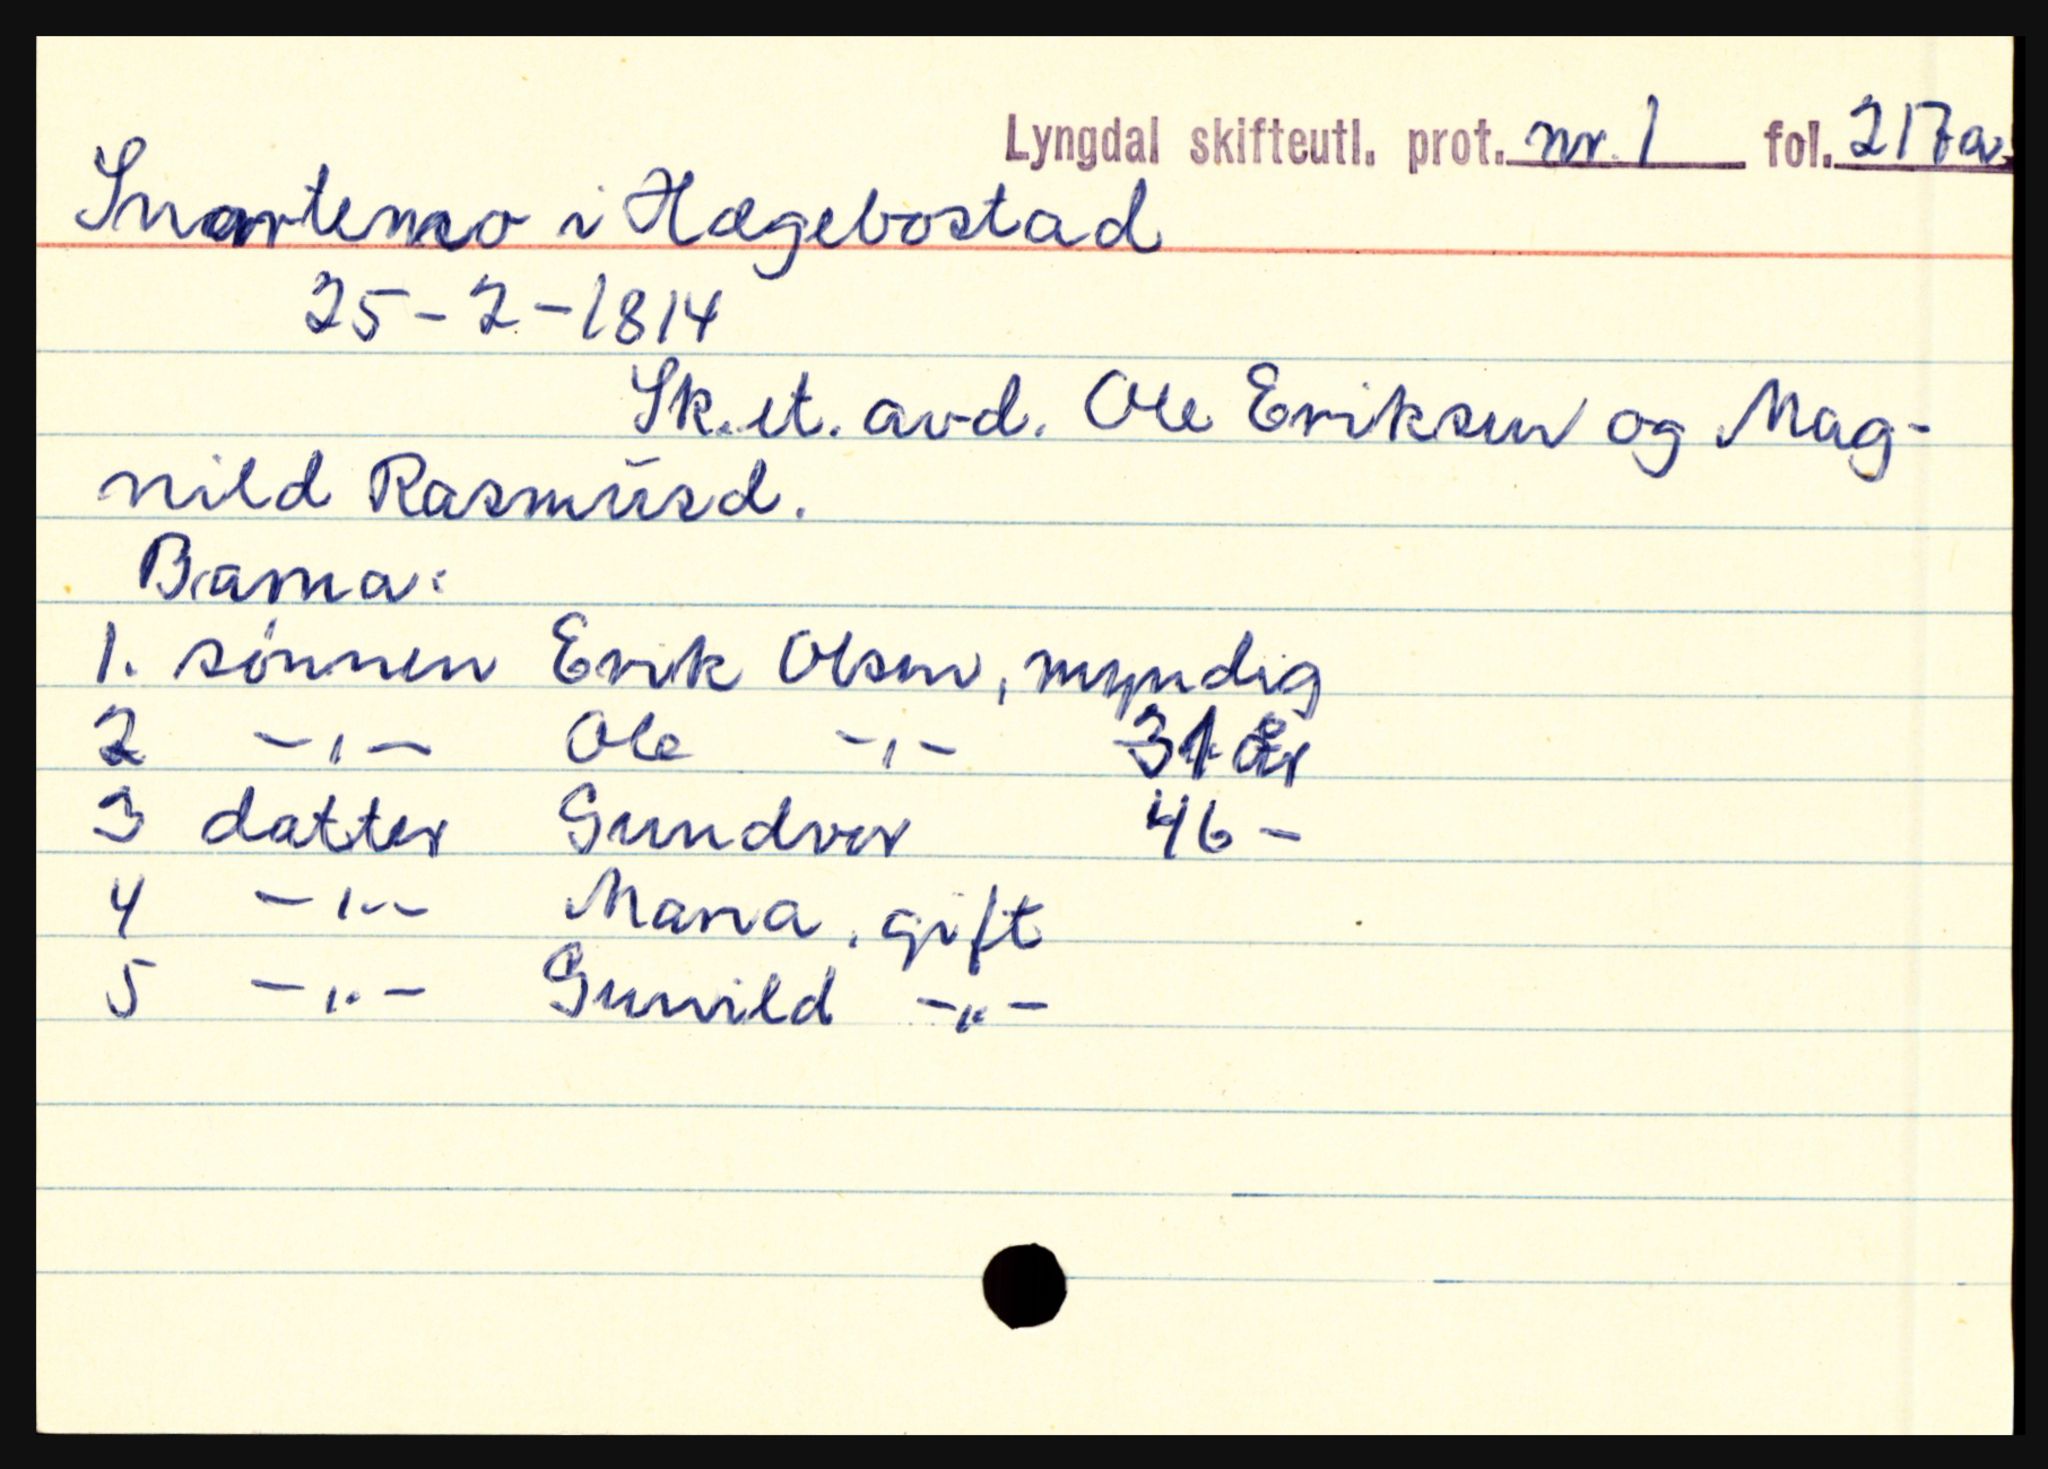 Lyngdal skifteutl. prot. nr. 1 fol. 217a
Snartemo i Hægebostad
25-2-1814
Sk. et. avd. Ole Eriksen og Mag-
nild Rasmusd.
Barna:
1. sønnen Erik Olsen, myndig
2 -"- Ole -"- 31 år
3 datter Gundvor 46 -
4 -"- Maria, gift
5 -"- Gunvild -"-